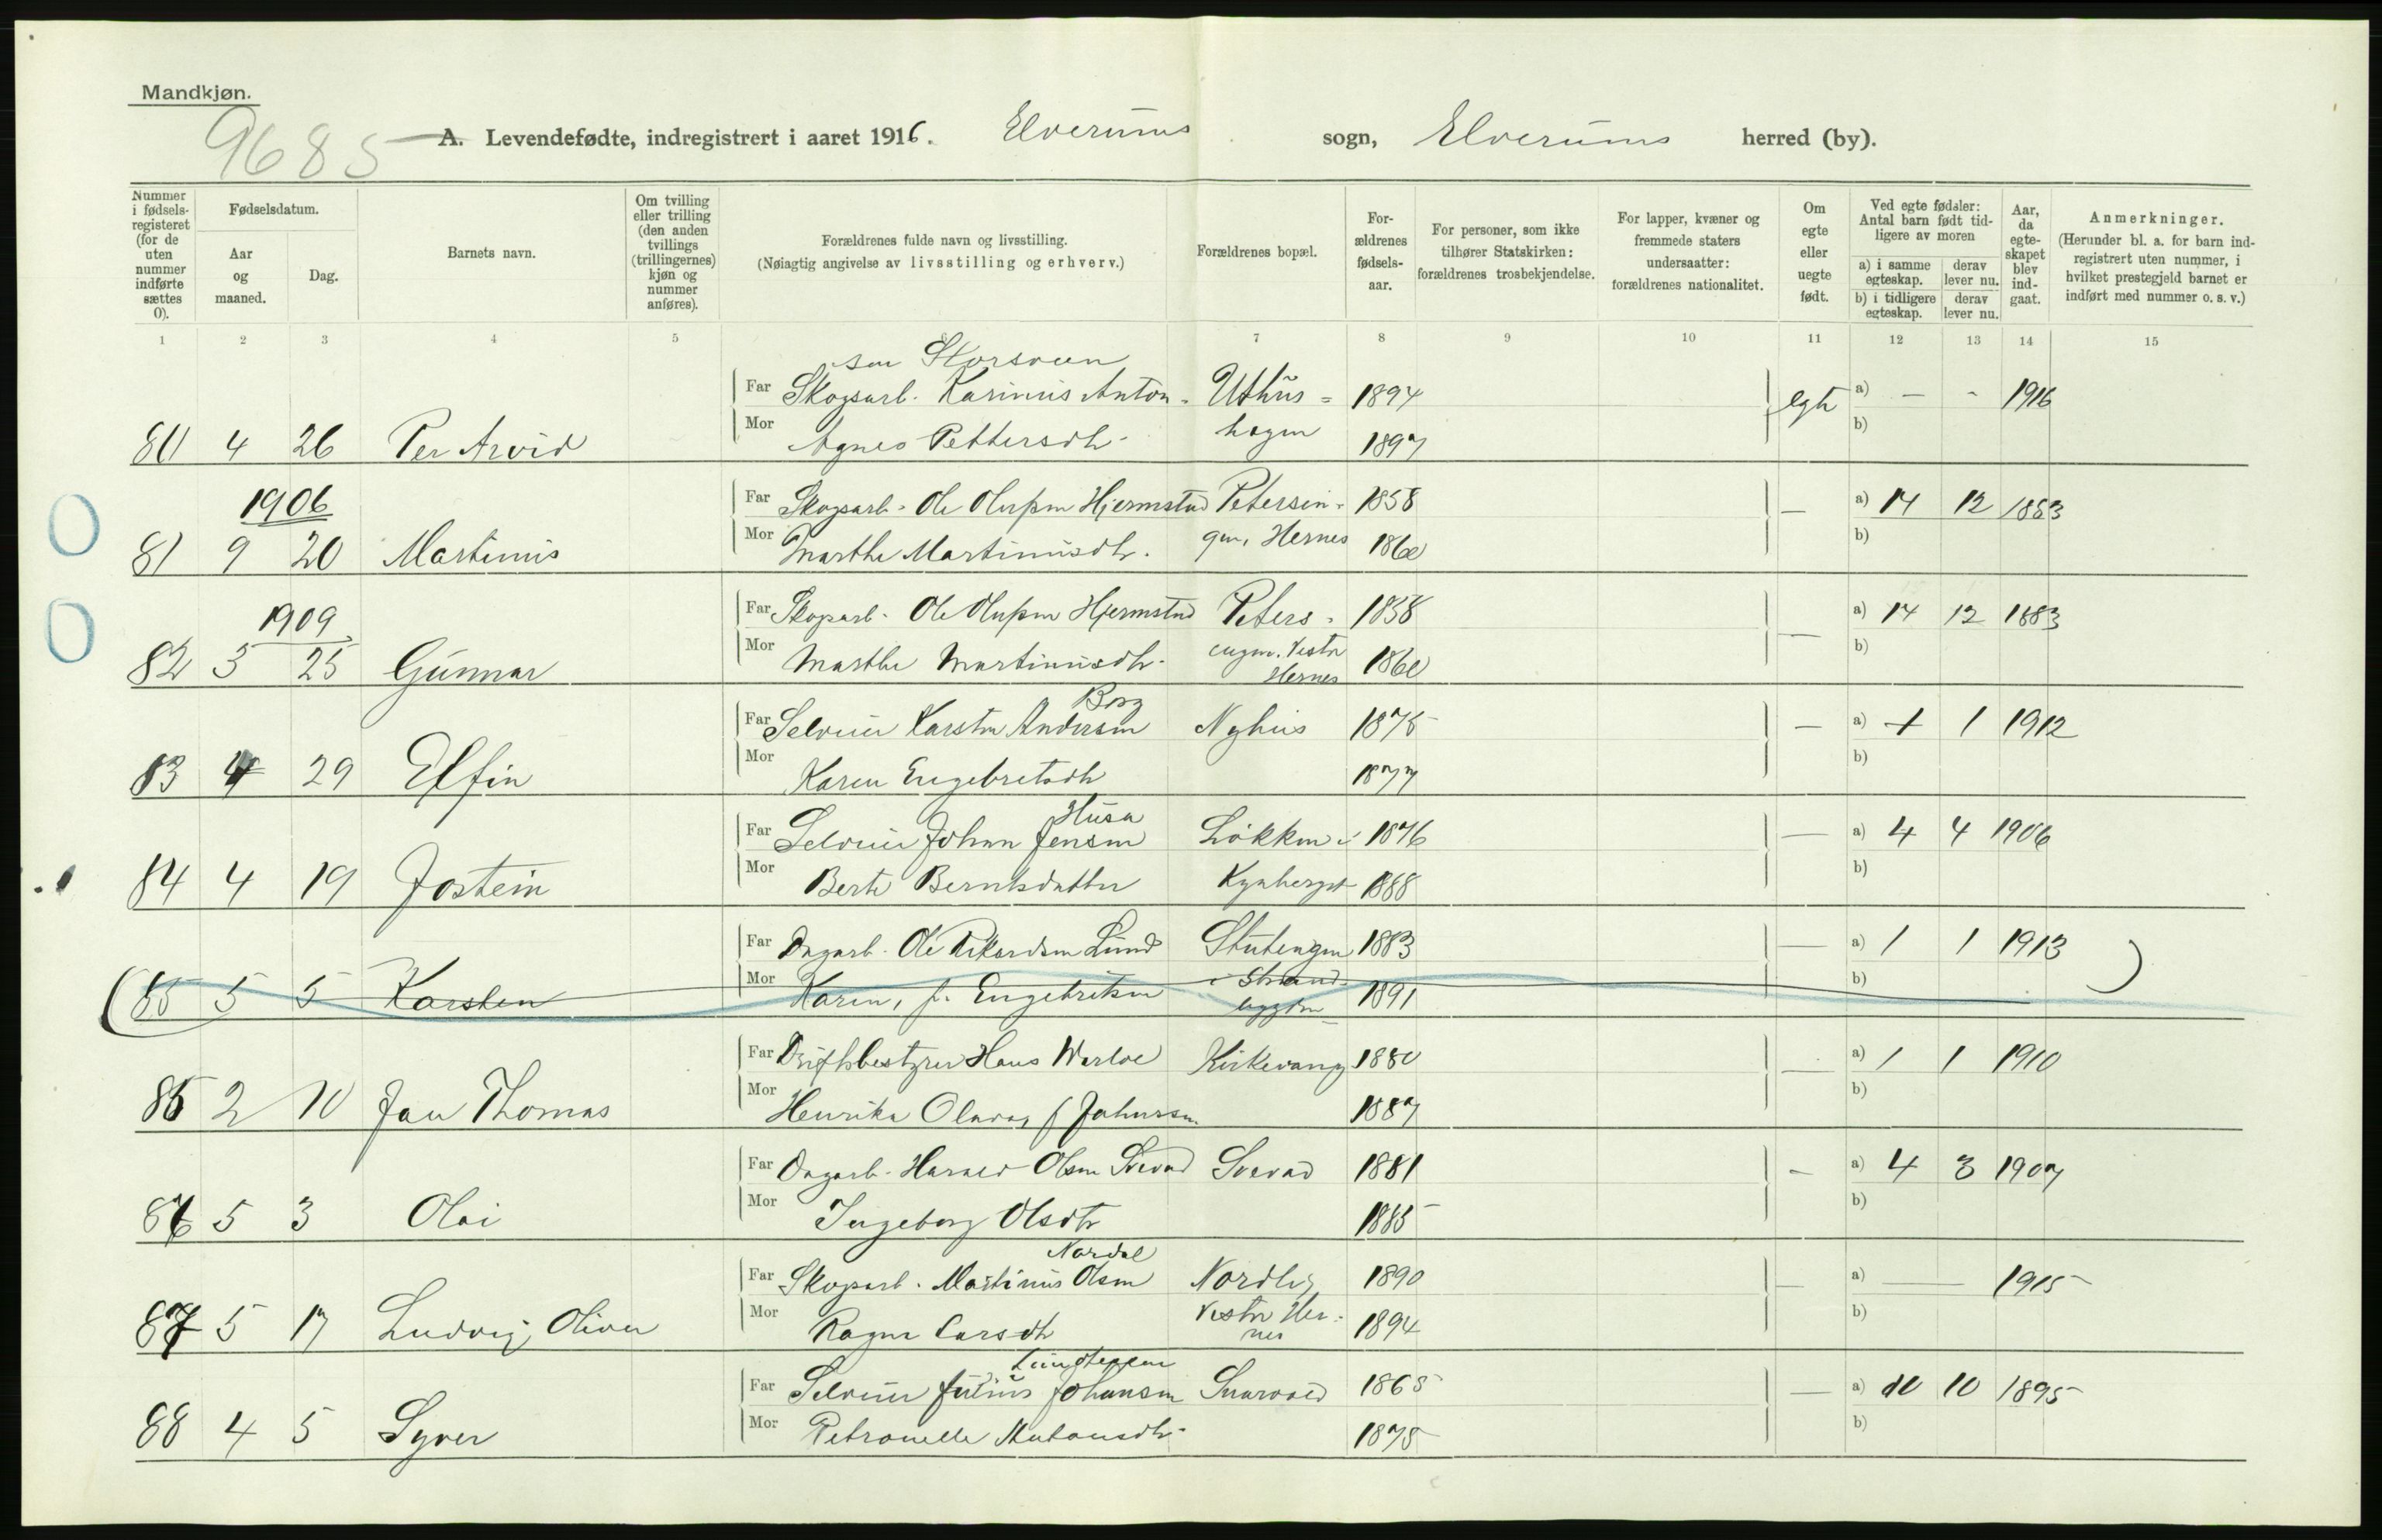 Mandkjøn.
9685
A. Levendefødte, indregistrert i aaret 1916. Elverums sogn, Elverums herred (by).
Nummer i fødsels-registeret (for de uten nummer indførte sættes 0).
Fødselsdatum.
Aar og maaned.
Dag.
Barnets navn.
Om tvilling eller trilling (den anden tvillings (trillingernes) kjøn og nummer anføres).
Forældrenes fulde navn og livsstilling.
(Nøiagtig angivelse av livsstilling og erhverv.)
Forældrenes bopæl.
For-ældrenes fødsels-aar.
For personer, som ikke tilhører Statskirken: forældrenes trosbekjendelse.
For lapper, kvæner og fremmede staters undersaatter: forældrenes nationalitet.
Om egte eller uegte født.
Ved egte fødsler: Antal barn født tid-ligere av moren
a) i samme egteskap.
derav lever nu.
b) i tidligere egteskap.
derav lever nu.
Aar, da egte-skapet blev ind-gaat.
Anmerkninger.
(Herunder bl. a. for barn ind-registrert uten nummer, i hvilket prestegjeld barnet er indført med nummer o. s. v.)
1 2 3 4 5 6 7 8 9 10 11 12 13 14 15
sen Storsveen
Far Skogsarb. Karinius Anton- Uthus= 1894 egte a) - - 1916
80 4 26 Per Arvid Mor Agnes Pettersdtr. hagen 1897 b)
1906
Far Skogsarb. Ole Olufsen Hjermstad Petersen- 1858 — a) 14 12 1883
81 9 20 Martinius Mor Marthe Martiniusdtr. gen, Hernes 1860 b)
1909
Far Skogsarb. Ole Olufsen Hjermstad Peters- 1858 — a) 14 12 1883
82 5 25 Gunnar Mor Marthe Martiniusdtr. engen. Vestre Hernes 1860 b)
Borg
Far Selveier Karsten Andersen Nyhus 1875 — a) 1 1 1912
83 4 29 Elfin Mor Karen Engebretsdtr 1877 b)
Husa
Far Selveier Johan Jensen Løkken i 1876 — a) 4 4 1906
84 4 19 Jostein Mor Berte Berntsdatter Kynberget 1888 b)
Far Dagarb. Ole Rikardsen Lund Stutengen 1883 — a) 1 1 1913
(85 5 5 Karsten Mor Karen, f. Engebretsen i Strand-bygden 1891 b) )
Far Driftsbestyrer Hans Warloe Kirkevang 1880 — a) 1 1 1910
85 2 10 Jan Thomas Mor Henrika Olava, f Johnsen 1887 b)
Far Dagarb. Harald Olsen Svevad Svevad 1881 — a) 4 3 1907
86 5 3 Olai Mor Ingeborg Olsdtr 1885 b)
Nordal
Far Skogsarb. Martinius Olsen Nordby 1890 — a) — 1915
87 5 17 Ludvig Oliver Mor Ragna Larsdtr Vestre Her-nes 1894 b)
Far Selveier Julius Johansen 1865 — a) 10 10 1895
88 4 5 Syver Mor Petronelle Antonsdtr. 1875 b)